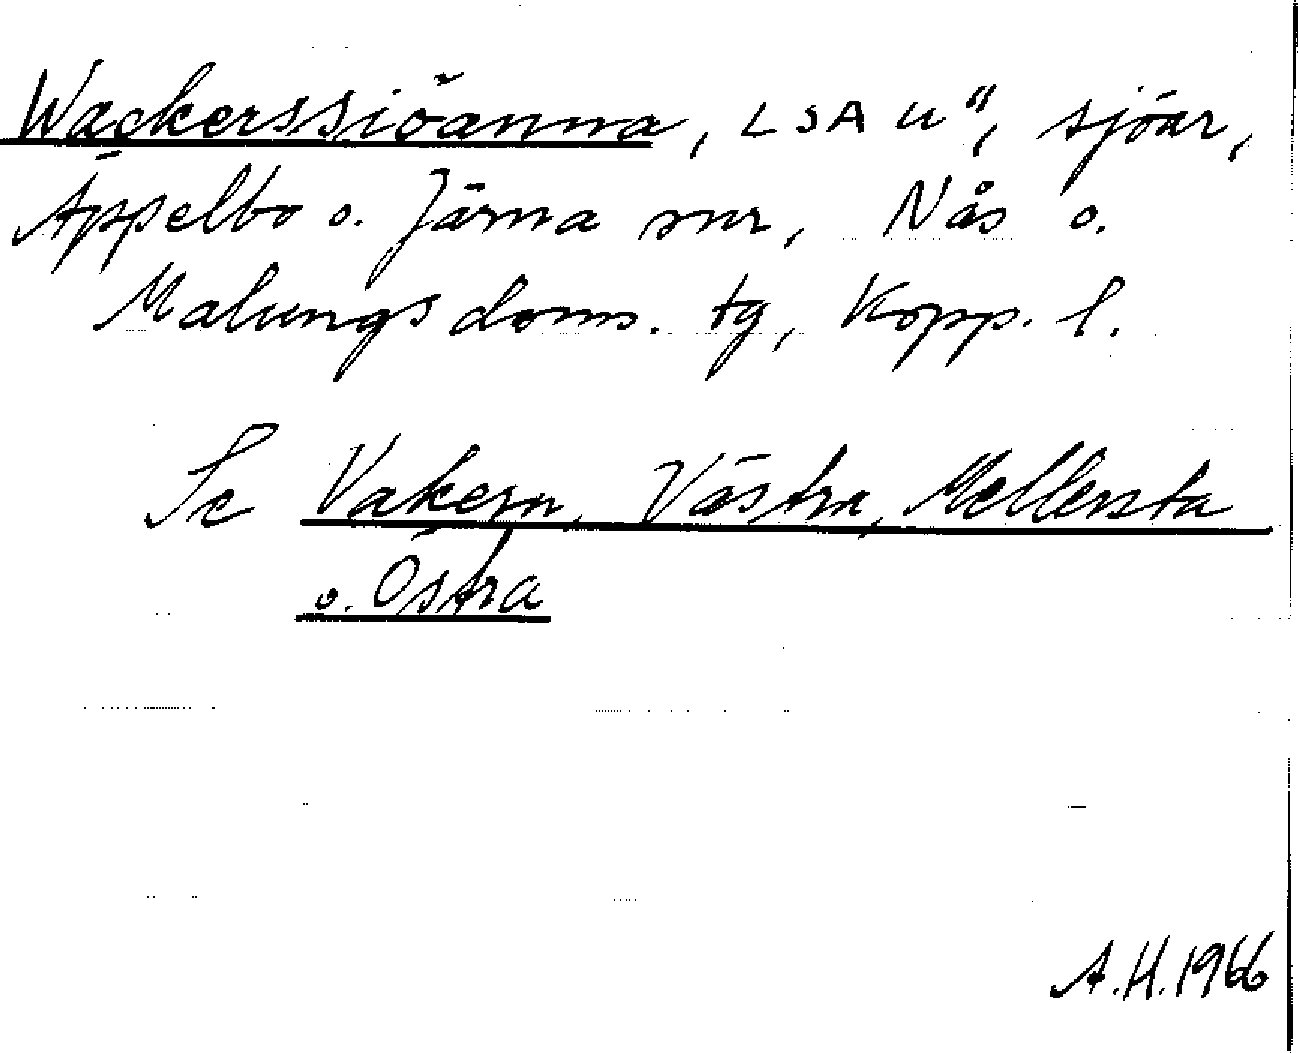 Wackerssiöanna, LSA U", sjöar,
Äppelbo o. Järna snr, Nås o.
Malungs doms. tg, Kopp. l.
Se Vakern, Västra, Mellersta
o. Östra
A.H. 1966